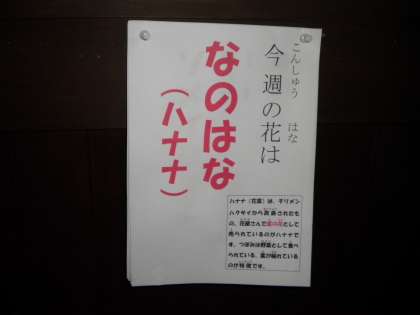 こんしゅう はな
今週の花は
なのはな
(ハナナ)
ハナナ(花菜)は、チリメン
ハクサイから改良されたも
の。花屋さんで菜の花として
売られているのがハナナで
す。つぼみは野菜として食べ
られている。葉が縮れている
のが特徴です。